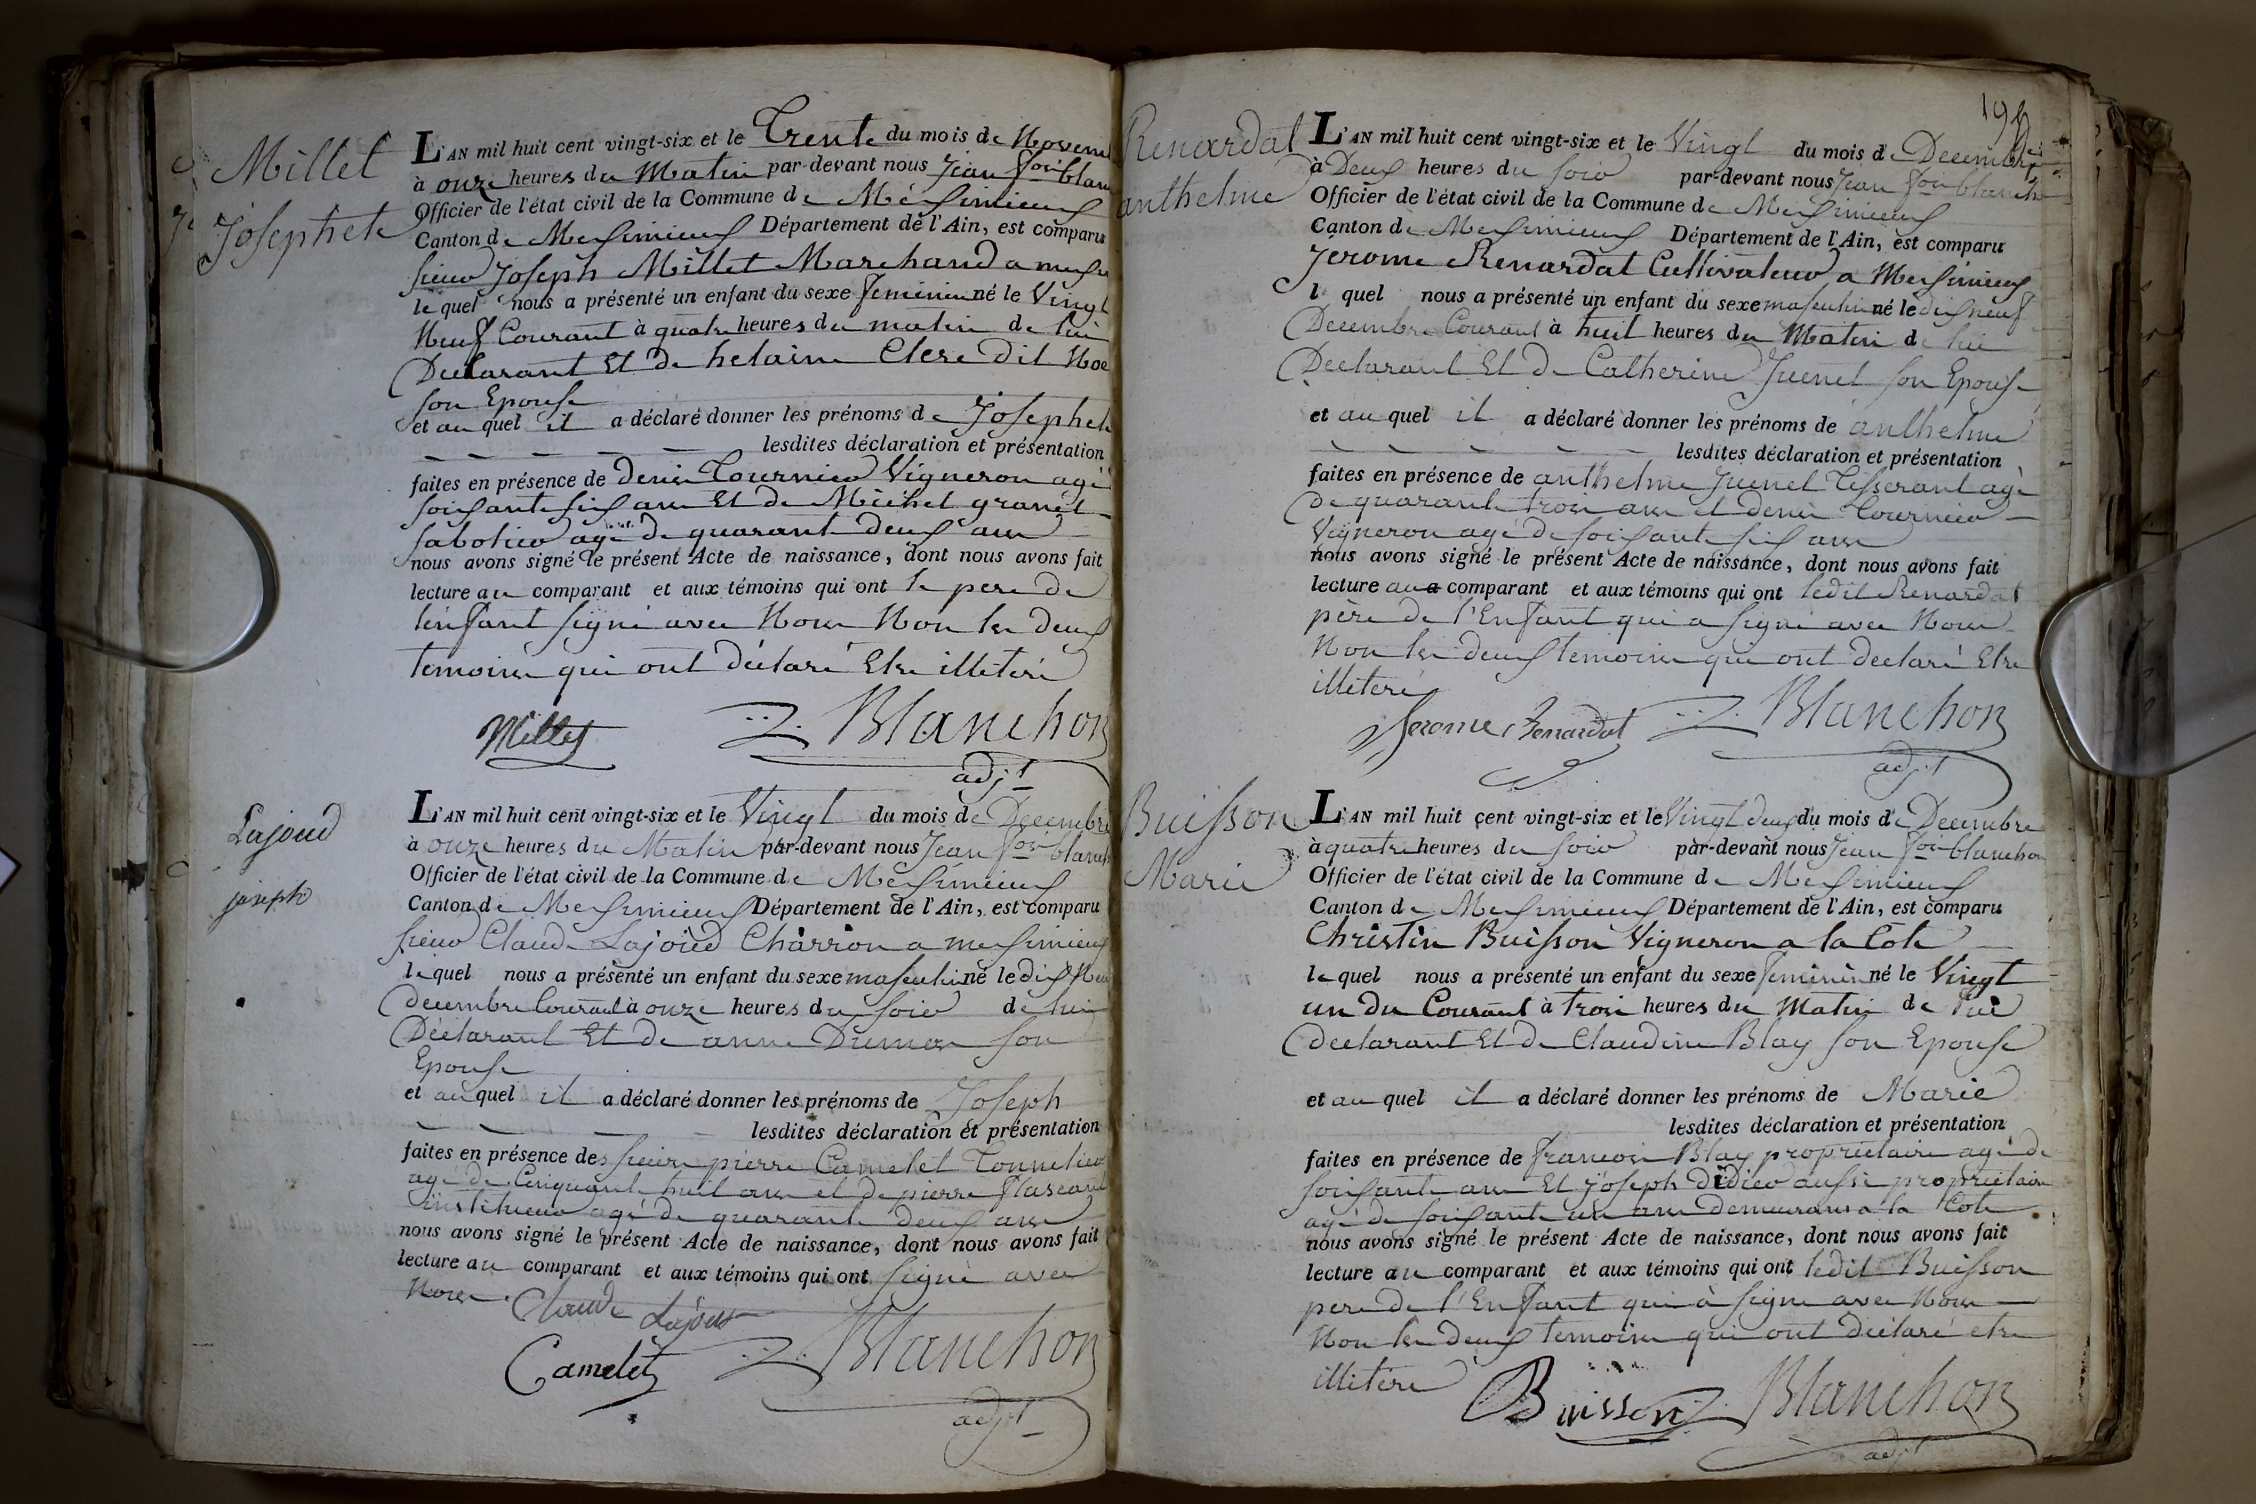 Millet
Josephete
L'AN mil huit cent vingt-six et le Trente du mois de Novem
à onze heures du Matin par-devant nous Jean fois blan
Officier de l'état civil de la Commune de Meximieux
Canton de Meximieux Département de l'Ain, est comparu
sieur Joseph Millet Marchand a mex
le quel nous a présenté un enfant du sexe feminin né le Vingt
Neuf Courant à quatre heures du matin de lui
Declarant Et de helaine Clere dit Noe
son Epouse
et au quel il a déclaré donner les prénoms de Josephete
lesdites déclaration et présentation
faites en présence de denis Tournier Vigneron agé
soixante six ans Et de Michel granet
sabotier agé de quarante deux ans
nous avons signé le présent Acte de naissance, dont nous avons fait
lecture au comparant et aux témoins qui ont le pere de
l'enfant signé avec Nous Non les deux
temoins qui ont déclaré Etre illetéré
Millet
Blanchon
adjt
Lajoud
joseph
L'AN mil huit cent vingt-six et le Vingt du mois de Decembre
à onze heures du Matin par-devant nous Jean fois blanch
Officier de l'état civil de la Commune de Meximieux
Canton de Meximieux Département de l'Ain, est comparu
sieur Claude Lajoud Charron a meximieux
le quel nous a présenté un enfant du sexe masculin né le dix Neuf
decembre Courant à onze heures du soir de lui
Déclarant Et de anne Dumas son
Epouse
et au quel il a déclaré donner les prénoms de Joseph
lesdites déclaration et présentation
faites en présence des sieurs pierre Camelet Tonnelier
agé de Cinquante huit ans et de pierre
instituteur agé de quarante deux ans
nous avons signé le présent Acte de naissance, dont nous avons fait
lecture au comparant et aux témoins qui ont signé avec
Nous. Claude Lajoud
Camelet Blanchon
adjt
195
Renardat
anthelme
L'AN mil huit cent vingt-six et le Vingt du mois de Decembre
à Deux heures du soir par-devant nous Jean fois blanchon
Officier de l'état civil de la Commune de Meximieux
Canton de Meximieux Département de l'Ain, est comparu
Jerome Renardat Cultivateur a Meximieux
le quel nous a présenté un enfant du sexe masculin né le dix neuf
Decembre Courant à huit heures du Matin de lui
Declarant Et de Catherine Juenet son Epouse
et au quel il a déclaré donner les prénoms de anthelme
lesdites déclaration et présentation
faites en présence de anthelme Juenet Tisserant agé
de quarante trois ans et denis Tournier
Vigneron agé de soixante six ans
nous avons signé le présent Acte de naissance, dont nous avons fait
lecture au comparant et aux témoins qui ont ledit Renardat
père de l'Enfant qui a signé avec Nous
Non les deux temoins qui ont declaré Etre
illeteré
Jerome Renardat Blanchon
adjt
Buisson
Marie
L'AN mil huit cent vingt-six et le Vingt deux du mois de Decembre
à quatre heures du soir par-devant nous Jean fois blanchon
Officier de l'état civil de la Commune de Meximieux
Canton de Meximieux Département de l'Ain, est comparu
Christin Buisson Vigneron a la Cote
le quel nous a présenté un enfant du sexe feminin né le Vingt
un du Courant à trois heures du Matin de lui
declarant Et de Claudine Blay son Epouse
et au quel il a déclaré donner les prénoms de Marie
lesdites déclaration et présentation
faites en présence de francois Blay propriétaire agé de
soixante ans Et joseph didier aussi propriétaire
agé de soixante un ans demeurans a la Cote
nous avons signé le présent Acte de naissance, dont nous avons fait
lecture au comparant et aux témoins qui ont ledit Buisson
pere de l'Enfant qui à signé avec Nous
Non les deux temoins qui ont déclaré etre
illiteré
Buisson Blanchon
adjt